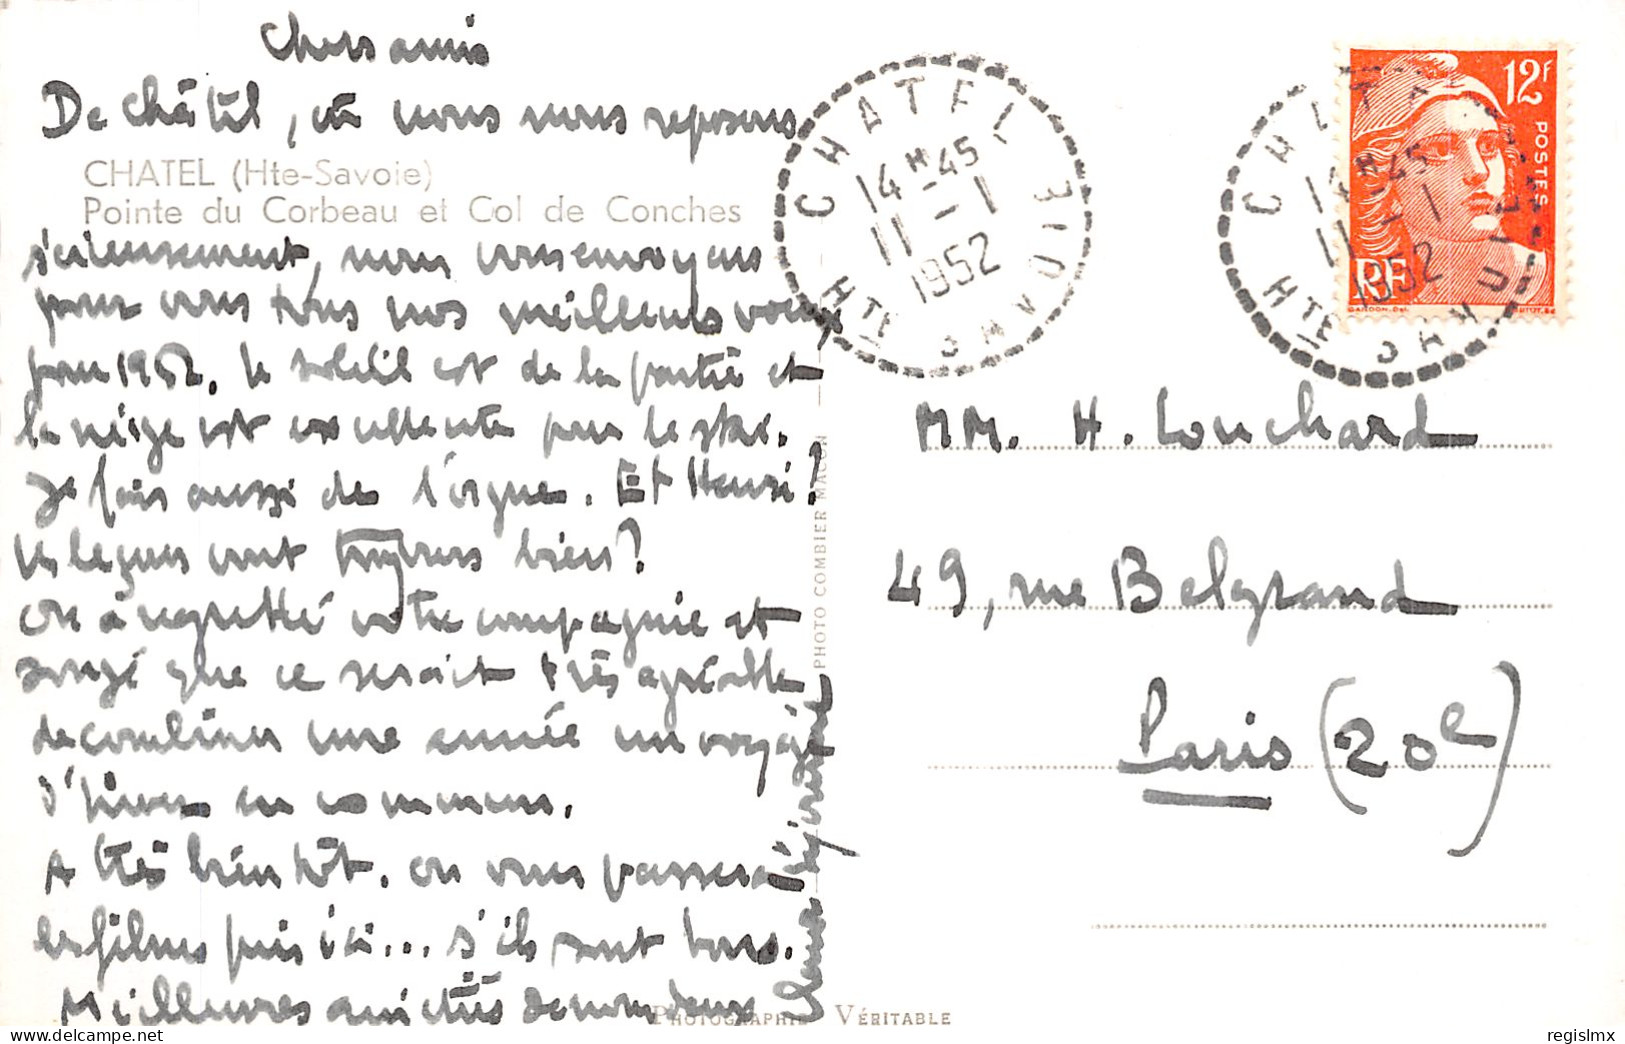 Chers amis
De Châtel, où nous nous reposons
CHATEL (Hte-Savoie)
Pointe du Corbeau et Col de Conches
sérieusement, nous vous envoyons
pour vous tous nos meilleurs voeux
pour 1952. Le soleil est de la partie et
la neige est excellente pour le ski.
Je fais aussi de l'orgue. Et Henri?
les leçons vont toujours bien?
On a regretté votre compagnie et
songé que ce serait très agréable
de combiner une année un voyage
d'hiver en commun.
A très bientôt. On vous passera
les films pris ici... s'ils sont bons.
Meilleures amitiés de nous deux
PHOTO COMBIER MACON
PHOTOGRAPHIE VÉRITABLE
CHATEL
14H-45
11-1
1952
HTE SAVOIE
CHATEL
14H-45
11-1
1952
HTE SAVOIE
12F
POSTES
RF
GANDON.Del.
MM. H. Louchard
49, rue Belgrand
Paris (20e)
regislmx